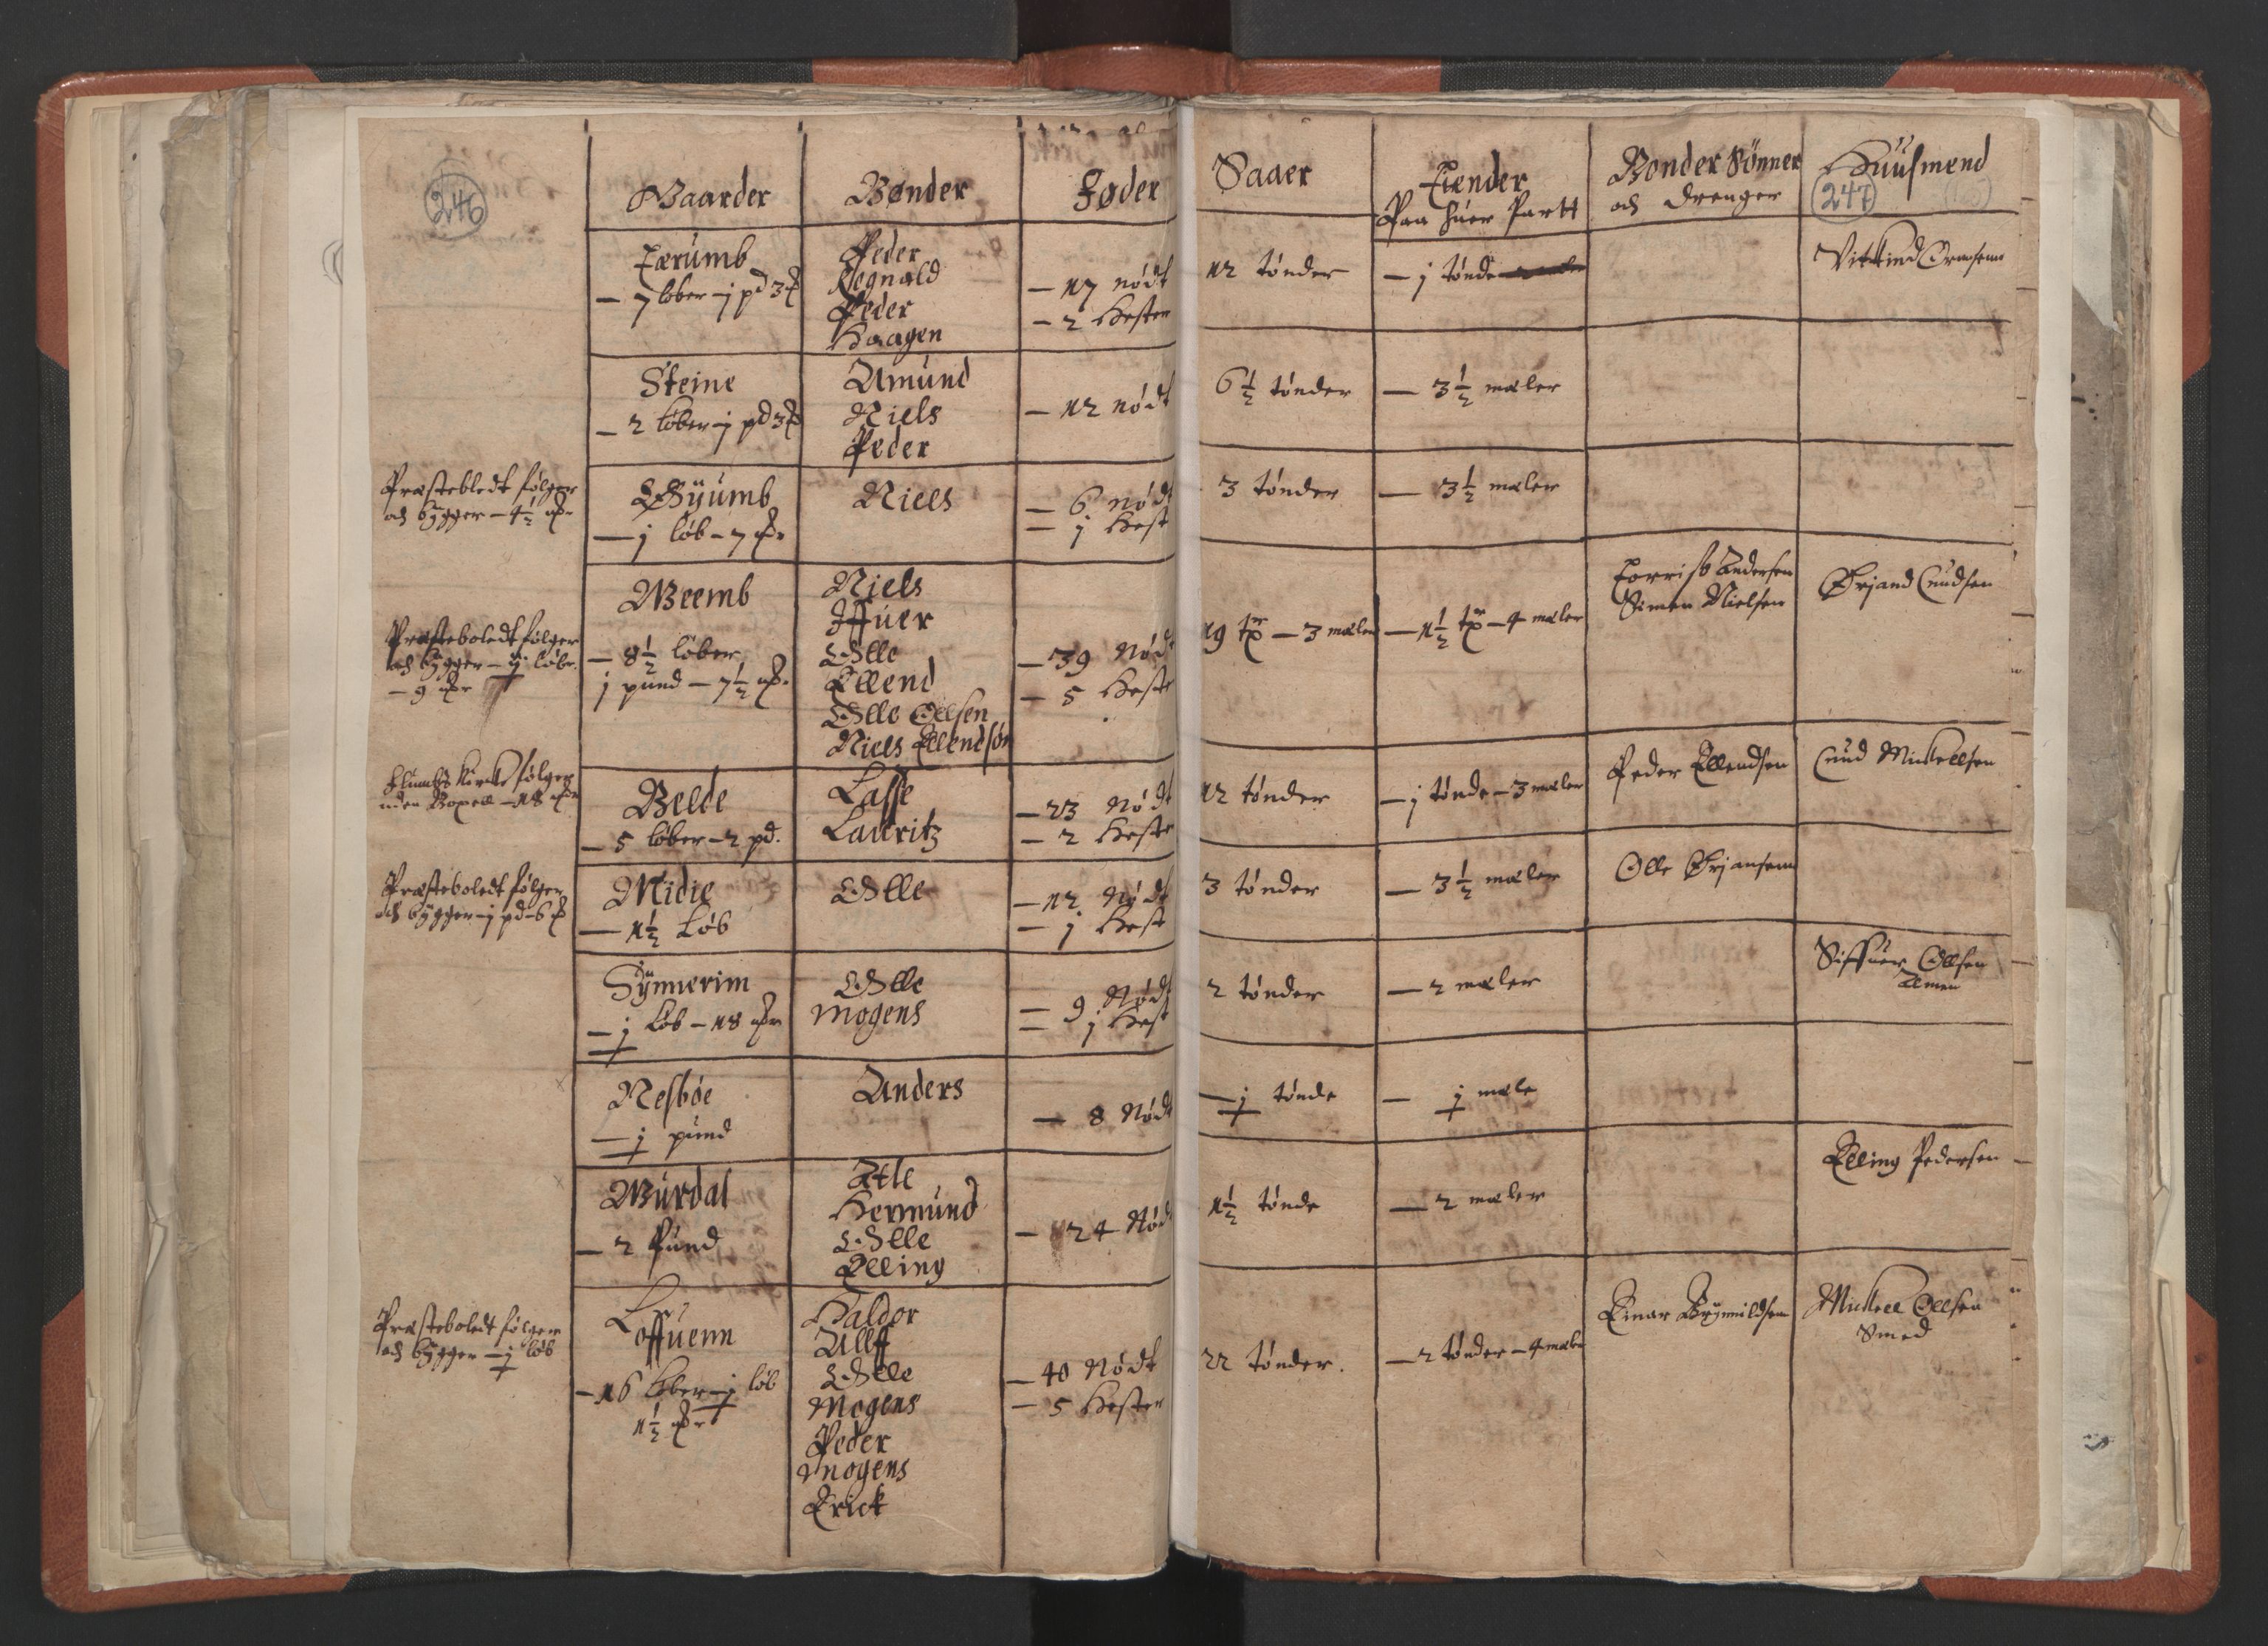 246
Gaarder
Bønder
Føder
Tærumb
– 7 løber – j pd 3 ℔
Peder
Regnald
Peder
Haagen
– 17 nødt
– 2 Hester
Steine
– 2 løber – j pd 3 ℔
Amund
Niels
Peder
– 12 nødt
Præstebledt følger
och bygger – 4½
Øyumb
– j løb – 7
Niels
– 6 nødt
– j Hest
Præsteboledt følger
och bygger – løb
– 9
Weemb
– 8½ løber
j pund – 7½
Niels
Iffuer
Olle
Ellend
Olle Ollsen
Niels Ellendsøn
– 39 Nødt
– 5 Heste
Kircke følger
uden Bøxell – 18
Belde
– 5 løber – 2 pd.
Lasse
Lauritz
– 23 Nødt
– 2 Heste
Præsteboledt følger
och bygger – j pd – 6 ℔
Midie
– 1½ Løb
Olle
– 12 Nødt
– j Hest
Synnerim
– j Løb – 18
Olle
Mogens
– 9 Nødt
– j Hest
Nesbøe
– j pund
Anders
– 8 Nødt
Wurdal
– 2 Pund
Atle
Hermund
Olle
Elling
– 24 Nødt
Præsteboledt følger
och bygger – j løb
Loffuenn
– 16 løber – j løb
1½
Haldor
Allff
Olle
Mogens
Peder
Mogens
Erick
– 40 Nødt
– 5 Hester
Saaer
Tiender
Paa huer Partt
Bønder Sønner
och Drenger
Huusmend
247
12 tønder
– j tønde
Vittkind Ormsenn
6½ tønder
– 3½ mæler
3 tønder
– 3½ mæler
19 tr – 3 mæler
– 1½ tr – 4 mæler
Torris Andersen
Simen Nielsen
Ørjand Cnudsen
12 tønder
– j tønde – 3 mæler
Peder Ellendsen
Cnud Mickellsen
3 tønder
– 3½ mæler
Olle Ørjansenn
2 tønder
– 2 mæler
Siffuer Ollsen
– j tønde
– j mæle
1½ tønde
– 2 mæler
Elling Pedersen
22 tønder.
– 2 tønder – 4 mæler
Einar Brynnildsen
Mickell Ollsen
Smed